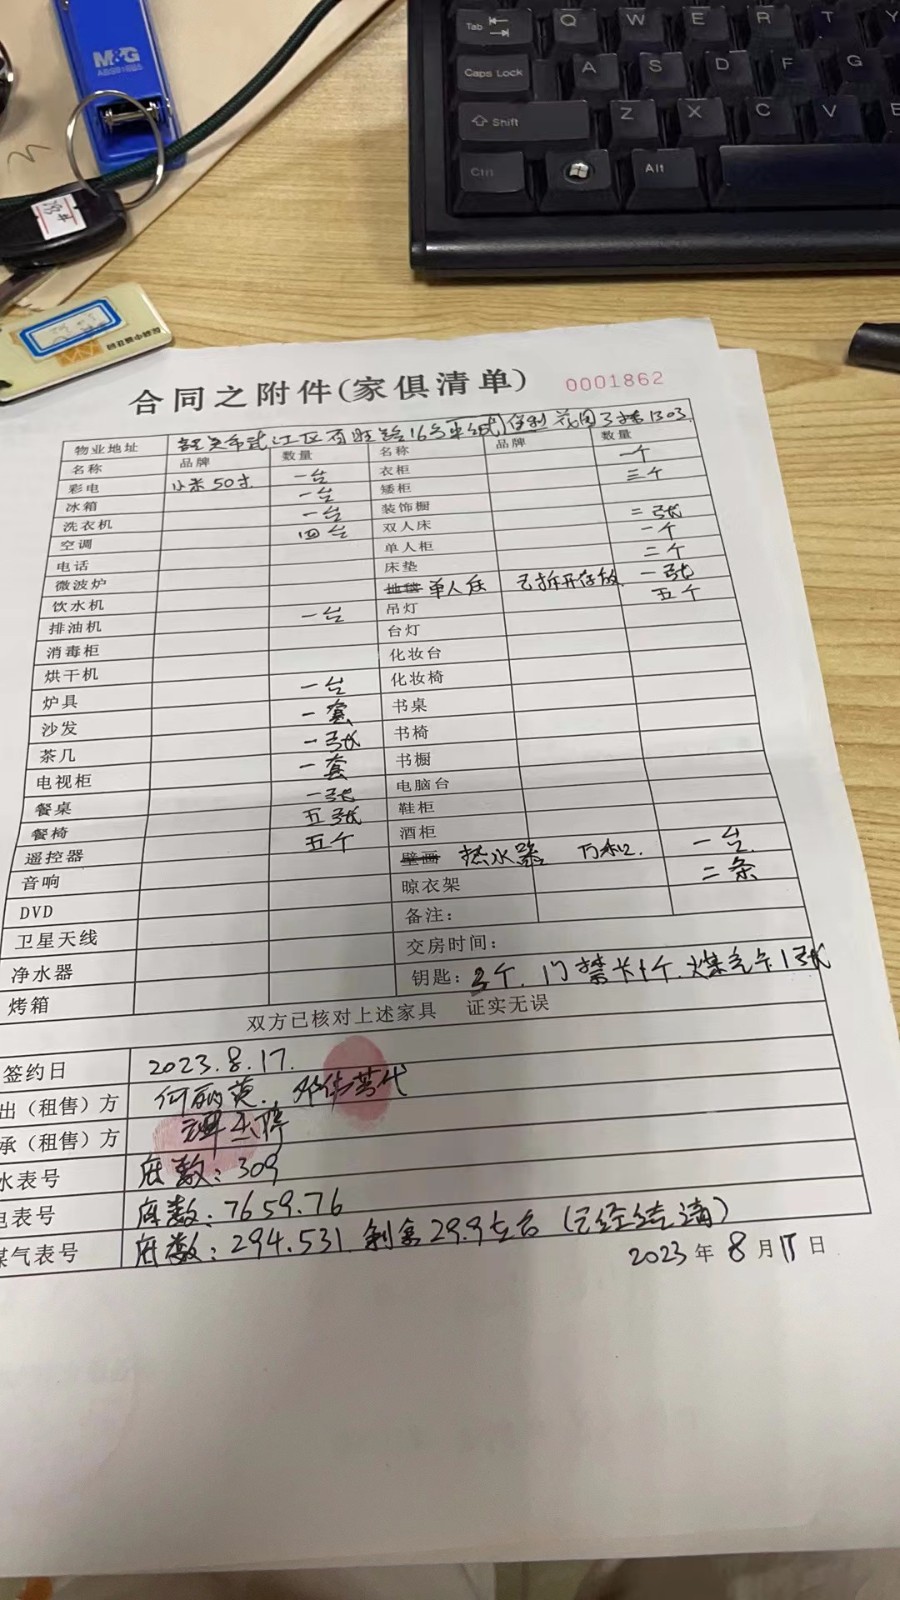 Tab Q W E R T Y
Caps Lock A S D F G
Shift Z X C V B
Ctrl Alt
M&G
合同之附件(家俱清单) 0001862
物业地址 韶关市武江区百旺路16号 花园 1303
名称 品牌 数量 名称 品牌 数量
彩电 小米50寸 一台 衣柜 一个
冰箱 一台 矮柜 三个
洗衣机 一台 装饰橱
空调 四台 双人床 二张
电话 单人柜 一个
微波炉 床垫 二个
饮水机 单人床 已拆开存放 一张
排油机 一台 吊灯 五个
消毒柜 台灯
烘干机 化妆台
炉具 一台 化妆椅
沙发 一套 书桌
茶几 一张 书椅
电视柜 一套 书橱
餐桌 一张 电脑台
餐椅 五张 鞋柜
遥控器 五个 酒柜
音响 壁画 热水器 万和 一台
DVD 晾衣架 二条
卫星天线 备注：
净水器 交房时间：
烤箱 钥匙：3个．门禁卡1个．煤气卡1张
双方已核对上述家具 证实无误
签约日 2023.8.17.
出（租售）方 何丽 代
承（租售）方
水表号 底数：309
电表号 底数：7659.76
煤气表号 底数：294.531 剩余29.9左右（已经结清）
2023年8月17日